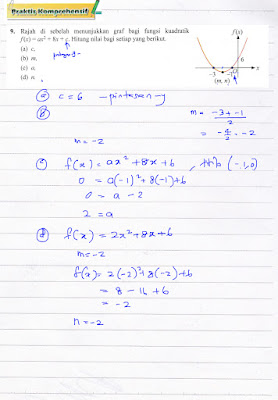 Praktis Komprehensif
9. Rajah di sebelah menunjukkan graf bagi fungsi kuadratik
f(x) = ax² + 8x + c. Hitung nilai bagi setiap yang berikut.
(a) c.
(b) m.
(c) a.
(d) n.
f(x)
6
-3 -1 0 x
(m, n)
(a) c = 6 - pintasan-y
(b) m = -3 + -1
2
= -4/2 = -2
m = -2
(c) f(x) = ax² + 8x + 6, (-1,0)
0 = a(-1)² + 8(-1) + 6
0 = a - 2
2 = a
(d) f(x) = 2x² + 8x + 6
m = -2
f(x) = 2(-2)² + 8(-2) + 6
= 8 - 16 + 6
= -2
n = -2